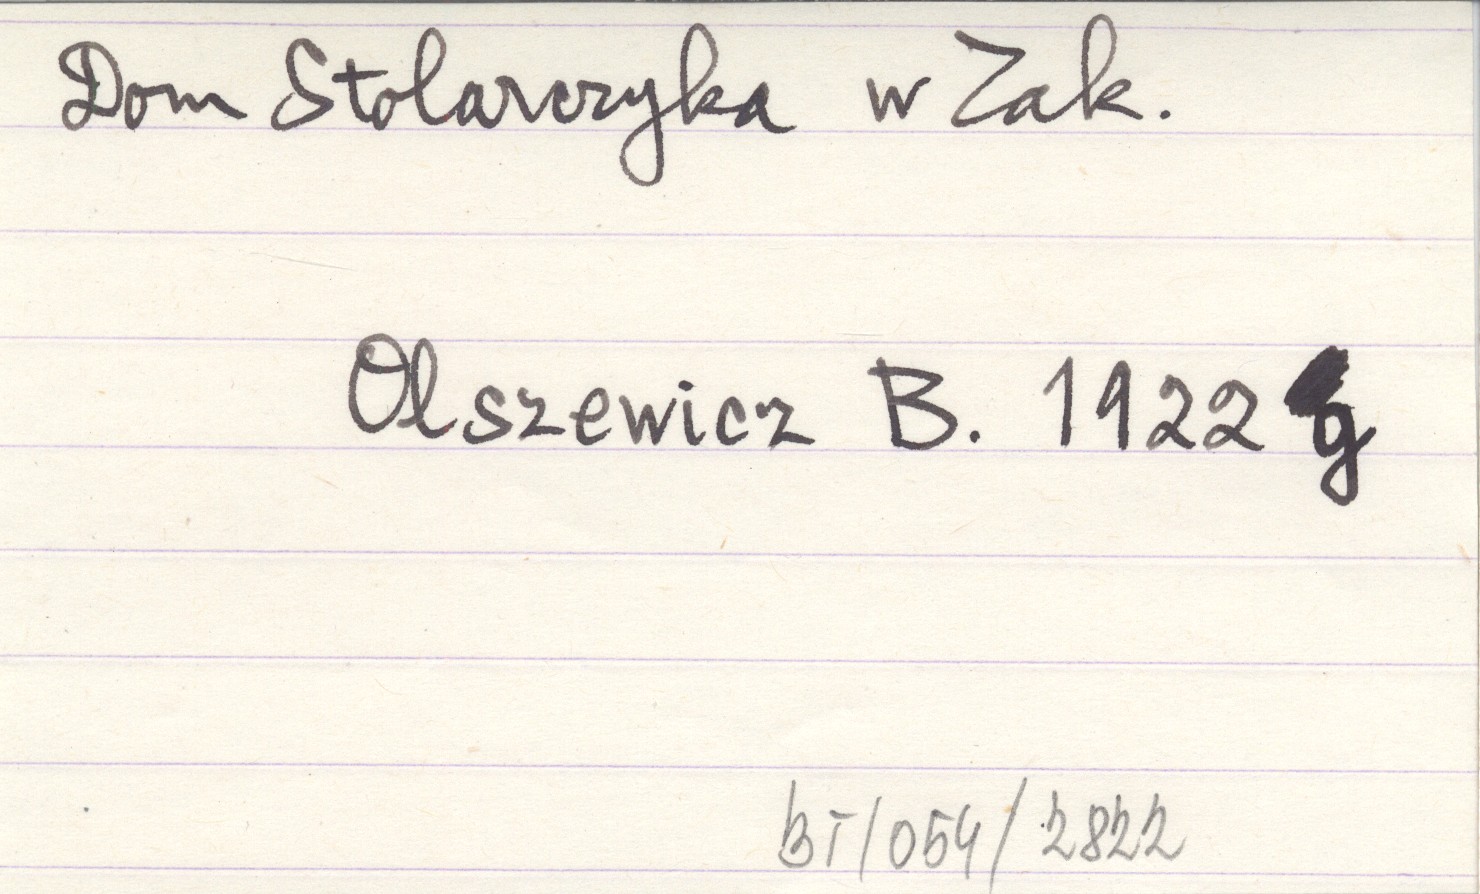 Dom Stolarczyka w Zak.
Olszewicz B. 1922 g
BT/054/2822